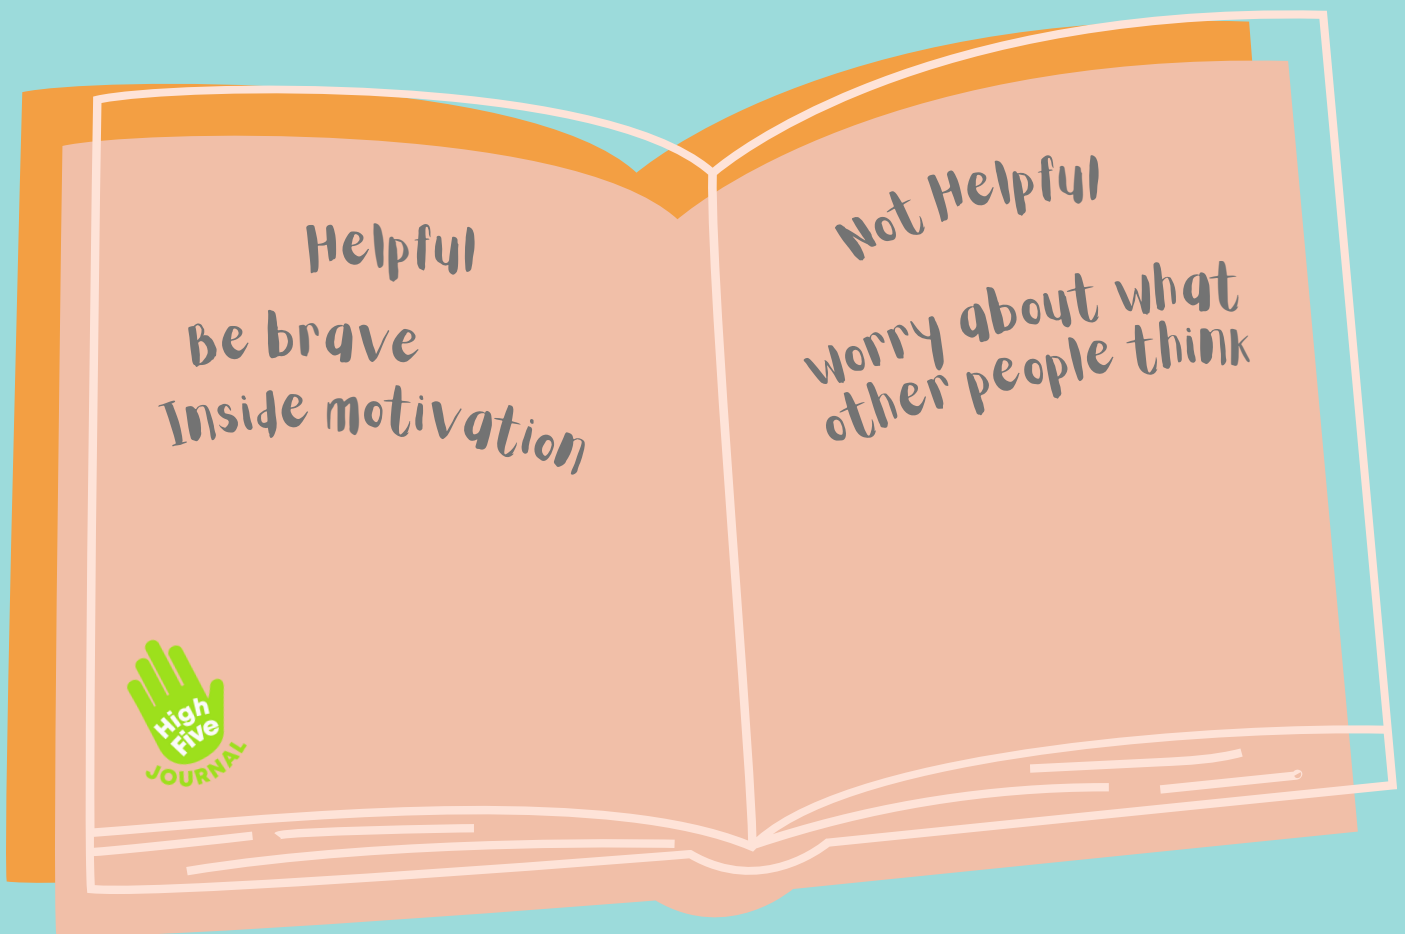 Helpful
Be brave
Inside motivation
High
Five
JOURNAL
Not Helpful
worry about what
other people think